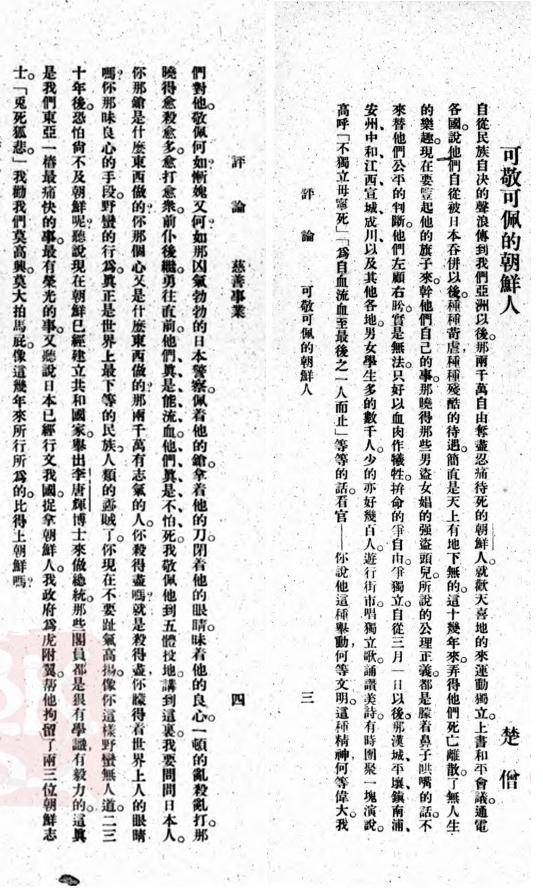 可敬可佩的朝鮮人
楚僧
自從民族自决的聲浪傳到我們亞洲以後。那兩千萬自由奪盡忍痛待死的朝鮮人。就歡天喜地的來運動獨立。上書和平會議。通電
各國。說他們自從被日本吞併以後。種種苛虐。種種殘酷的待遇。簡直是天上有地下無的。這十幾年來。弄得他們死亡離散了無人生
的樂趣。現在要豎起他的旗子。來幹他們自己的事。那曉得那些男盜女娼的強盜頭兒所說的公理正義。都是朦着鼻子哄嘴的話。不
來替他們公平的判斷。他們左顧右盼。實是無法。只好以血肉作犧牲。拚命的爭自由。爭獨立。自從三月一日以後。那漢城、平壤、鎮南浦、
安州、中和、江西、宣城、成川、以及其他各地男女學生。多的數千人。少的亦好幾百人。遊行街市。唱獨立歌。誦讚美詩。有時團聚一塊演說。
高呼「不獨立毋寧死」「爲自血流血至最後之一人而止」等等的話。看官——你說他這種舉動。何等文明。這種精神。何等偉大。我
評論 可敬可佩的朝鮮人
三
評論 慈善事業
四
們對他。敬佩何如。慚媿又何如。那凶氣勃勃的日本警察。佩着他的鎗。拿着他的刀。閉着他的眼睛。昧着他的良心。一頓的亂殺亂打。那
曉得愈殺愈多。愈打愈衆。前仆後繼。勇往直前。他們眞是能流血。他們眞是不怕死。我敬佩他到五體投地。講到這裏。我要問問日本人。
你那鎗是什麼東西做的?你那個心又是什麼東西做的?那兩千萬有志氣的人。你殺得盡嗎?就是殺得盡。你朦得着世界上人的眼睛
嗎?你那昧良心的手段。野蠻的行爲。眞正是世界上最下等的民族。人類的蟊賊了。你現在不要趾氣高揚。像你這樣野蠻無人道。二三
十年後。恐怕尙不及朝鮮呢?聽說現在朝鮮已經建立共和國家。舉出李唐輝博士來做總統。那些閣員都是狠有學識。有毅力的。這眞
是我們東亞一樁最痛快的事。最有榮光的事。又聽說日本已經行文我國。捉拿朝鮮人。我政府爲虎附翼。幫他拘留了兩三位朝鮮志
士。「兎死狐悲」我勸我們莫高興。莫大拍馬屁。像這幾年來所行所爲的。比得上朝鮮嗎?